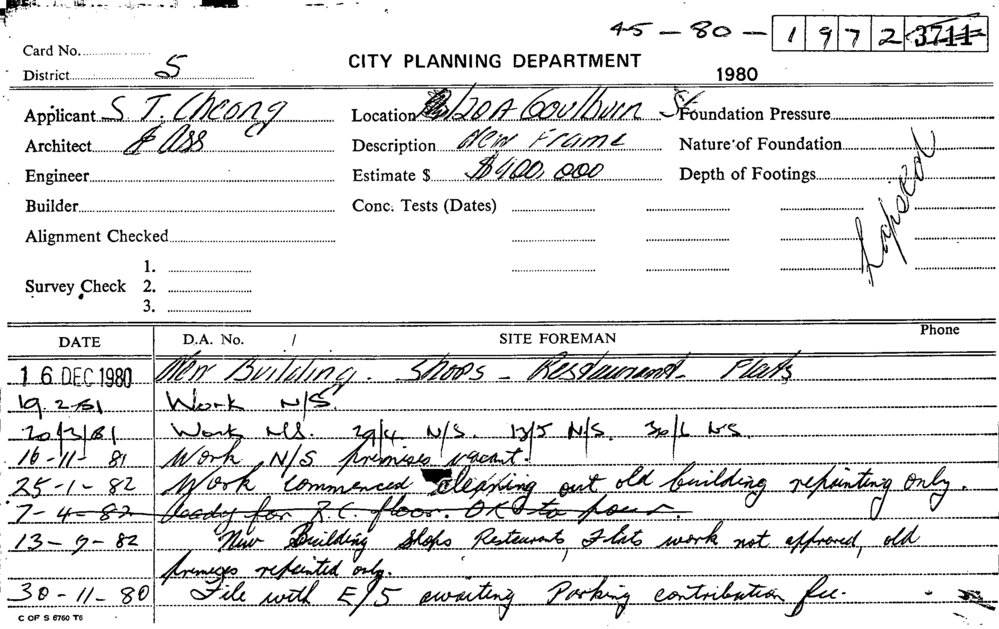 45 - 80 - 1 9 7 2 3711
Card No.
District 5
CITY PLANNING DEPARTMENT
1980
Applicant S. T. Cheong
Location 120A Goulburn St
Foundation Pressure
Architect & Ass
Description New Frame
Nature of Foundation
Engineer
Estimate $ $900,000
Depth of Footings
Builder
Conc. Tests (Dates)
Lapsed
Alignment Checked
1.
Survey Check 2.
3.
DATE D.A. No. / SITE FOREMAN Phone
16 DEC 1980 New Building. Shops - Restaurant - Flats
19.2.81 Work N/S.
20/3/81 Work N.S. 29/4. N/S. 13/5 N/S. 30/6 N.S.
16-11-81 Work N/S premises vacant.
25-1-82 Work commenced cleaning out old building repainting only.
7-4-82 Ready for R.C. floor. OK to pour.
13-9-82 New Building Shops Restaurants, Flats work not approved, old
premises repainted only.
30-11-80 File with E/5 awaiting Parking contribution fee.
C OF S 6760 T6